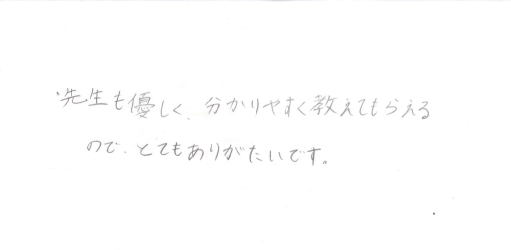 ・先生も優しく、分かりやすく教えてもらえる
ので、とてもありがたいです。